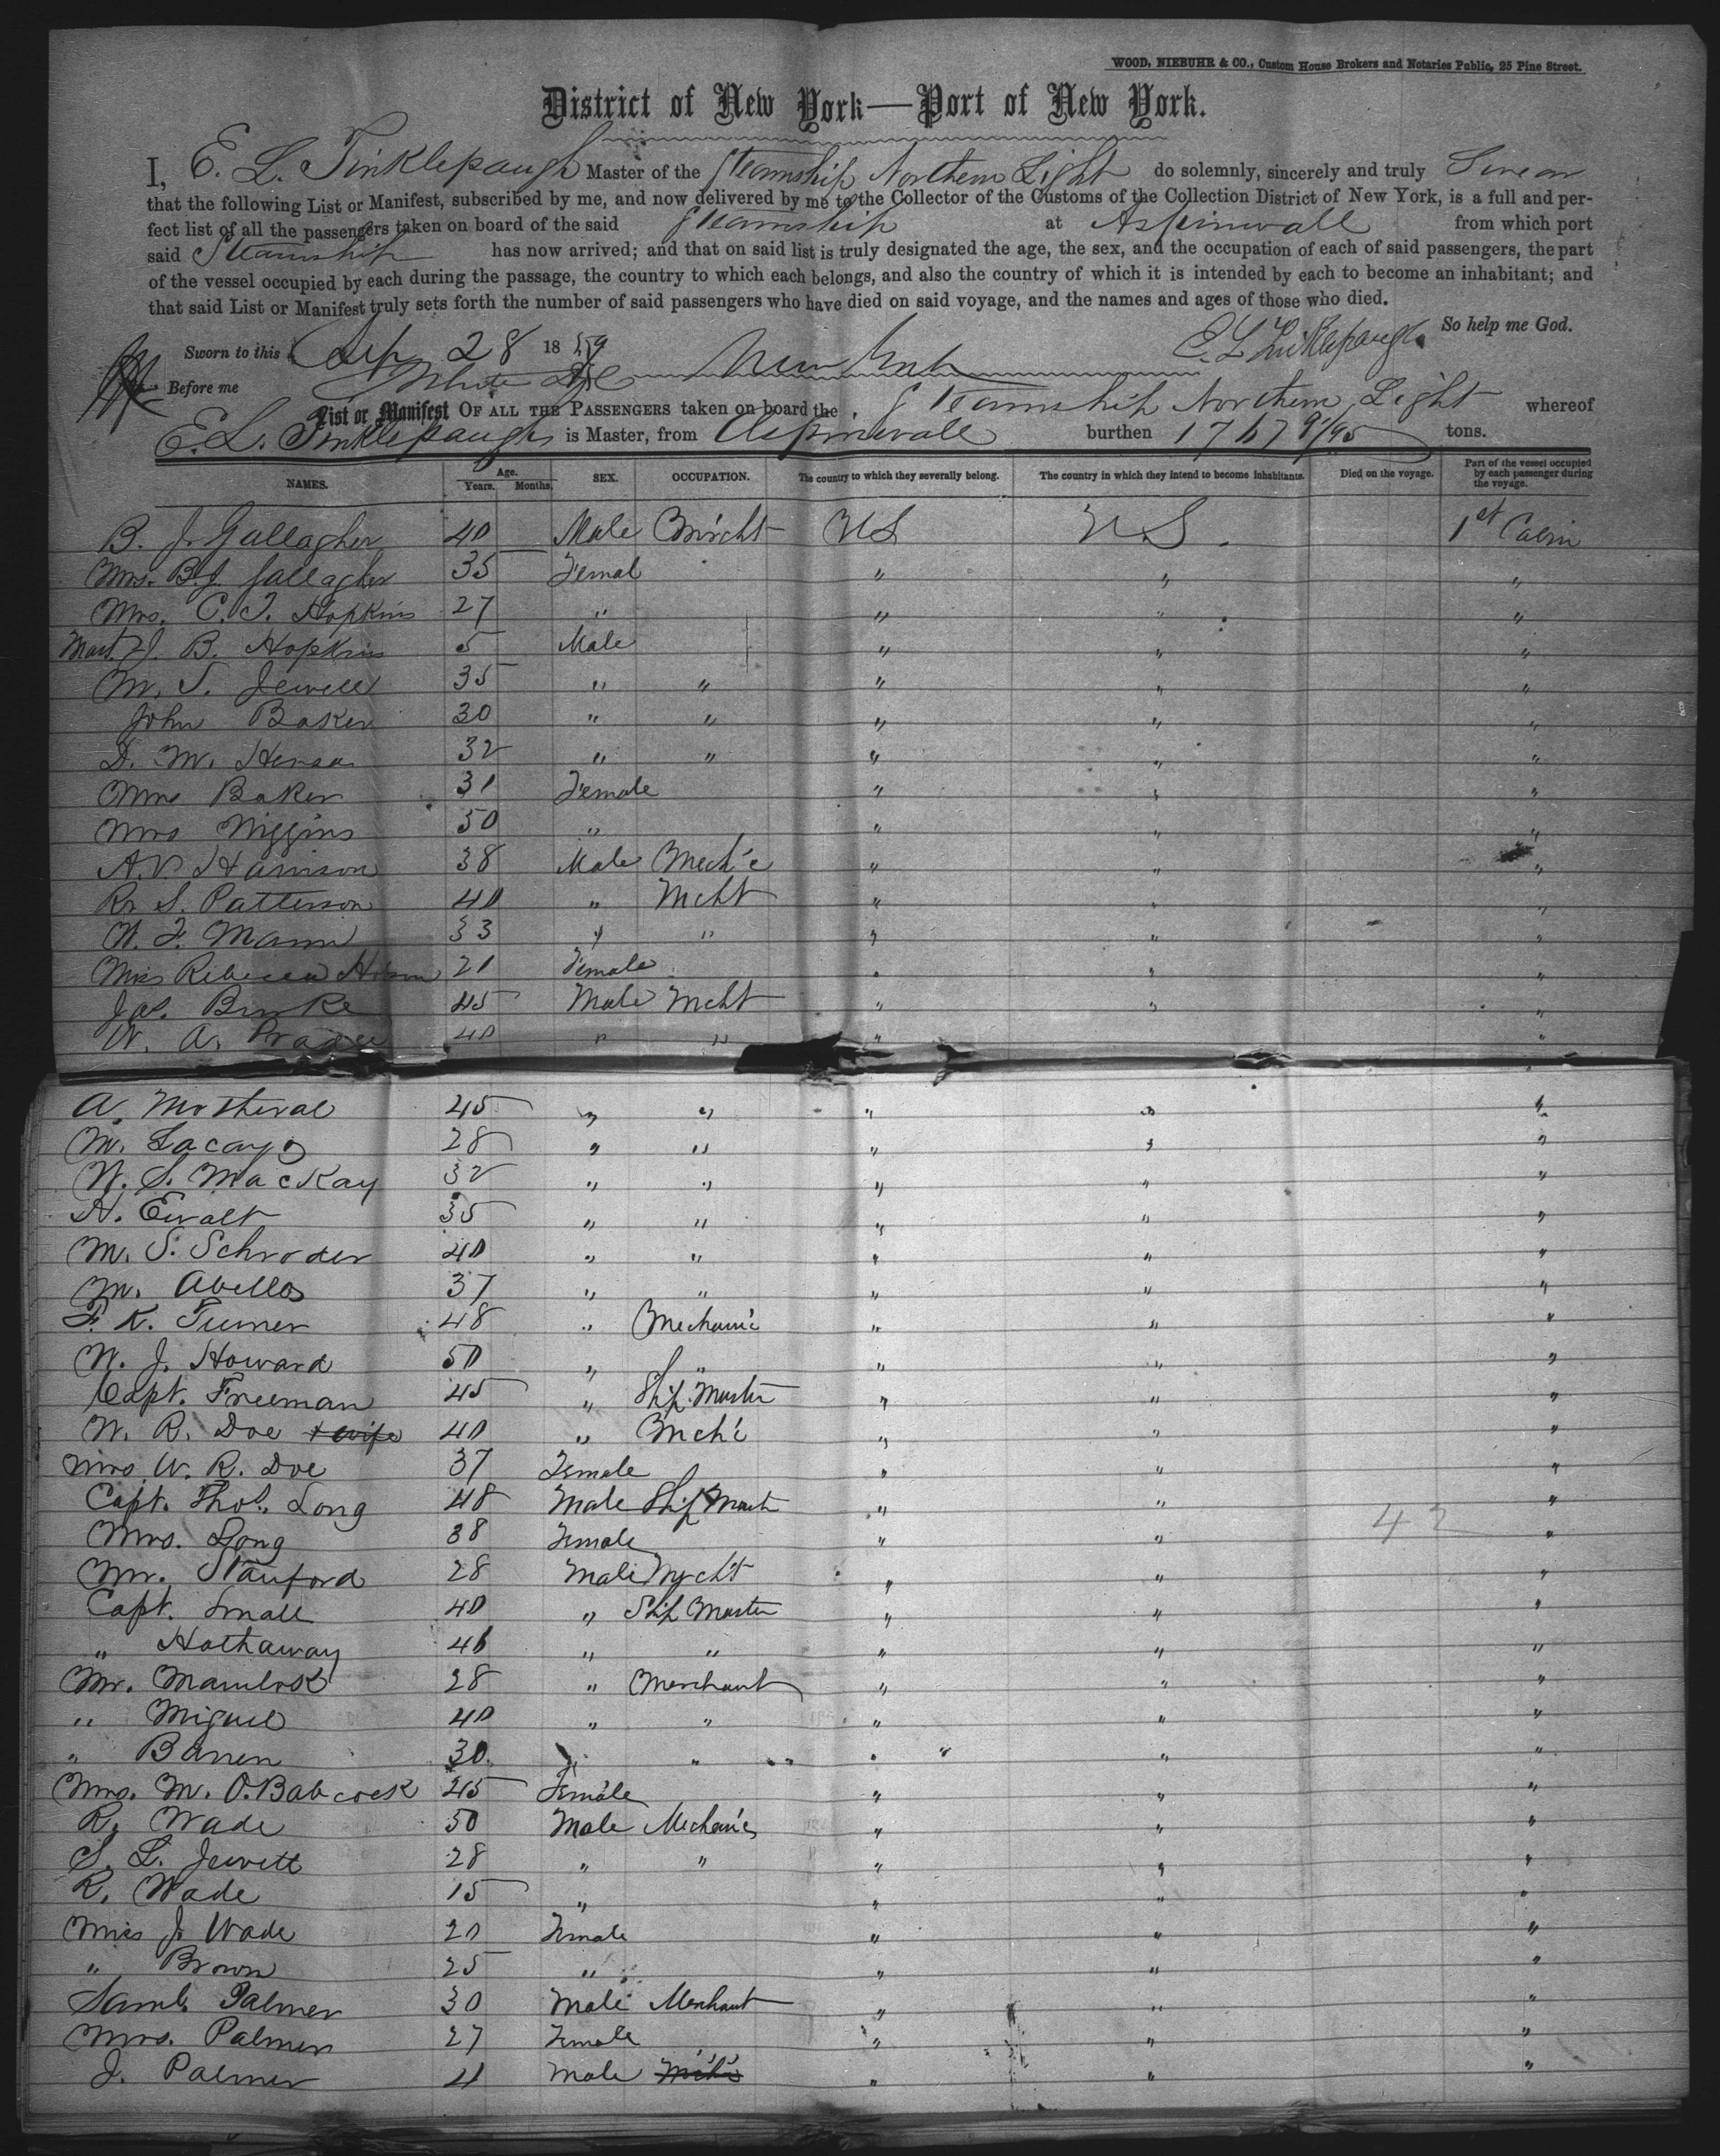 WOOD, NIEBUHR & CO., Custom House Brokers and Notaries Public, 25 Pine Street.
District of New York—Port of New York.
I, E. L. Tinklepaugh Master of the Steamship Northern Light do solemnly, sincerely and truly Swear
that the following List or Manifest, subscribed by me, and now delivered by me to the Collector of the Customs of the Collection District of New York, is a full and per-
fect list of all the passengers taken on board of the said Steamship at Aspinwall from which port
said Steamship has now arrived; and that on said list is truly designated the age, the sex, and the occupation of each of said passengers, the part
of the vessel occupied by each during the passage, the country to which each belongs, and also the country of which it is intended by each to become an inhabitant; and
that said List or Manifest truly sets forth the number of said passengers who have died on said voyage, and the names and ages of those who died.
So help me God.
Sworn to this Sep 28 1859 New York E L Tinklepaugh
Before me White
List or Manifest OF ALL THE PASSENGERS taken on board the Steamship Northern Light whereof
E. L. Tinklepaugh is Master, from Aspinwall burthen 1767 91/95 tons.
NAMES. Age. Years. Months. SEX. OCCUPATION. The country to which they severally belong. The country in which they intend to become inhabitants. Died on the voyage. Part of the vessel occupied by each passenger during the voyage.
B. J. Gallagher 40 Male U S U S. 1st Cabin
Mrs. B. J. Gallagher 35 Femal " " "
Mrs. C. T. Hopkins 27 " " " "
Mast. B. Hopkins 5 Male " " "
M. S. Jewell 35 " " " " "
John Baker 30 " " " " "
D. M. 32 " " " " "
Mrs Baker 31 Female " " "
Mrs Wiggins 50 " " " "
A. Harrison 38 Male Mech'c " " "
R. S. Patterson 40 " Mcht " " "
W. F. Mann 33 " " " " "
Miss Rebecca 21 Female " " "
Jas. Burke 45 Male Mcht " " "
W. A. 40 " " " "
A. Motheral 45 " " " " "
M. Lacayo 28 " " " " "
W. S. MacKay 32 " " " " "
H. Ewalt 35 " " " " "
M. S. Schroder 40 " " " " "
M. Abellos 37 " " " " "
F. K. Turner 48 " Mechanic " " "
W. J. Howard 50 " " " " "
Capt. Freeman 45 " Ship Master " " "
W. R. Doe & wife 40 " Mch'c " " "
Mrs W. R. Doe 37 Female " " "
Capt. Thos. Long 48 Male Ship Mast " " "
Mrs. Long 38 Female " " 42 "
Mr. Stanford 28 Male Mrcht " " "
Capt. Small 40 " Ship Master " " "
" Hathaway 46 " " " " "
Mr. Mamlock 28 " Merchant " " "
" Miguel 40 " " " " "
" Barren 30 " " " " "
Mrs. M. O. Babcock 45 Female " " "
R. Wade 50 Male Mechanic " " "
S. L. Jewett 28 " " " " "
R. Wade 15 " " " "
Miss J. Wade 20 Female " " "
" Brown 25 " " " "
Saml. Palmer 30 Male Merchant " " "
Mrs. Palmer 27 Female " " "
J. Palmer 4 Male " " "